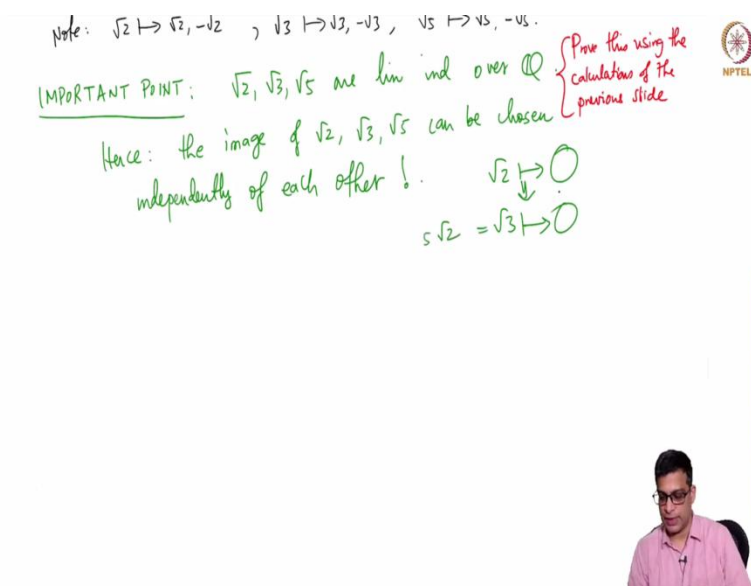 Note: √2 ↦ √2, -√2 , √3 ↦ √3, -√3 , √5 ↦ √5, -√5.
IMPORTANT POINT: √2, √3, √5 are lin ind over ℚ.
{Prove this using the
calculations of the
previous slide
NPTEL
Hence: the image of √2, √3, √5 can be chosen
independently of each other !.
√2 ↦ O
⇓
5√2 = √3 ↦ O